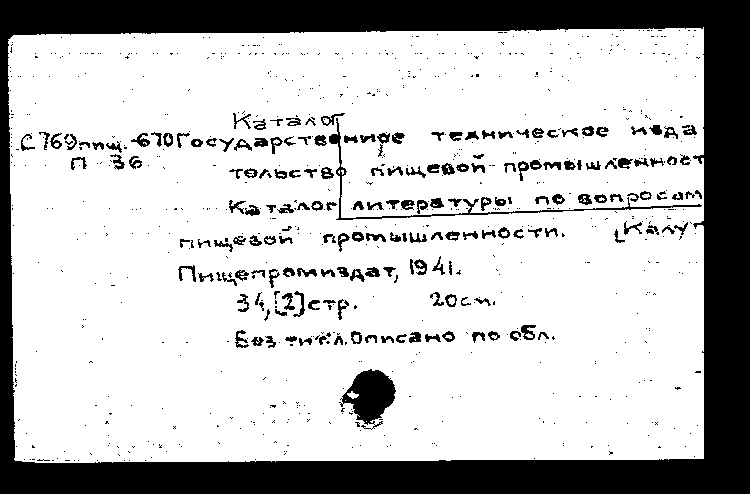 Каталог
С769пищ.-670 Государственное техническое изда
П 36
тельство пищевой промышленност
Каталог литературы по вопросам
пищевой промышленности. [Калуг
Пищепромиздат, 1941.
34,[2]стр. 20см.
Без тит.л. Описано по обл.